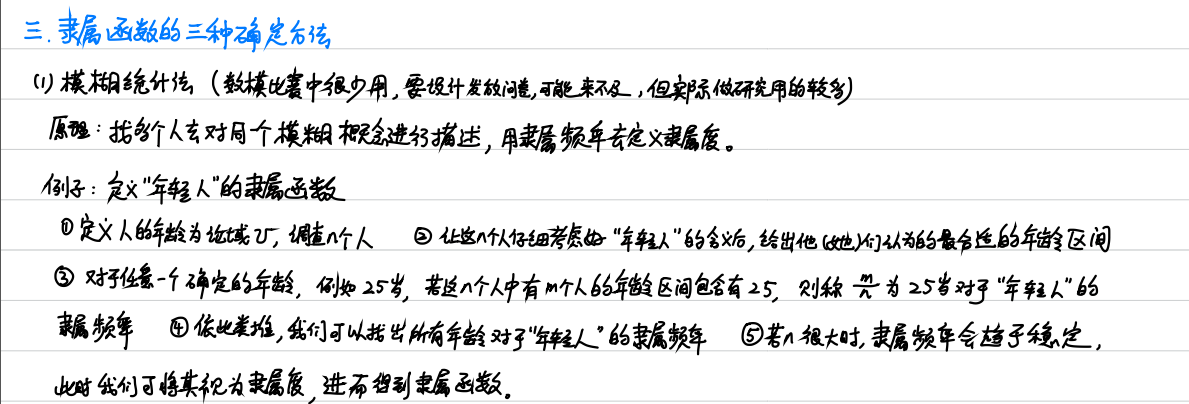 三.隶属函数的三种确定方法
(1) 模糊统计法（数模比赛中很少用,要设计发放问卷,可能来不及,但实际做研究用的较多)
原理：找多个人去对同一个模糊概念进行描述，用隶属频率去定义隶属度。
例子：定义“年轻人”的隶属函数
①定义人的年龄为论域U，调查n个人 ②让这n个人仔细考虑好“年轻人”的含义后,给出他(她)们认为的最合适的年龄区间
③对于任意一个确定的年龄，例如25岁，若这n个人中有m个人的年龄区间包含有25，则称 m/n 为25岁对于“年轻人”的
隶属频率 ④依此类推,我们可以找出所有年龄对于“年轻人”的隶属频率 ⑤若n很大时,隶属频率会趋于稳定,
此时我们可将其视为隶属度,进而得到隶属函数。